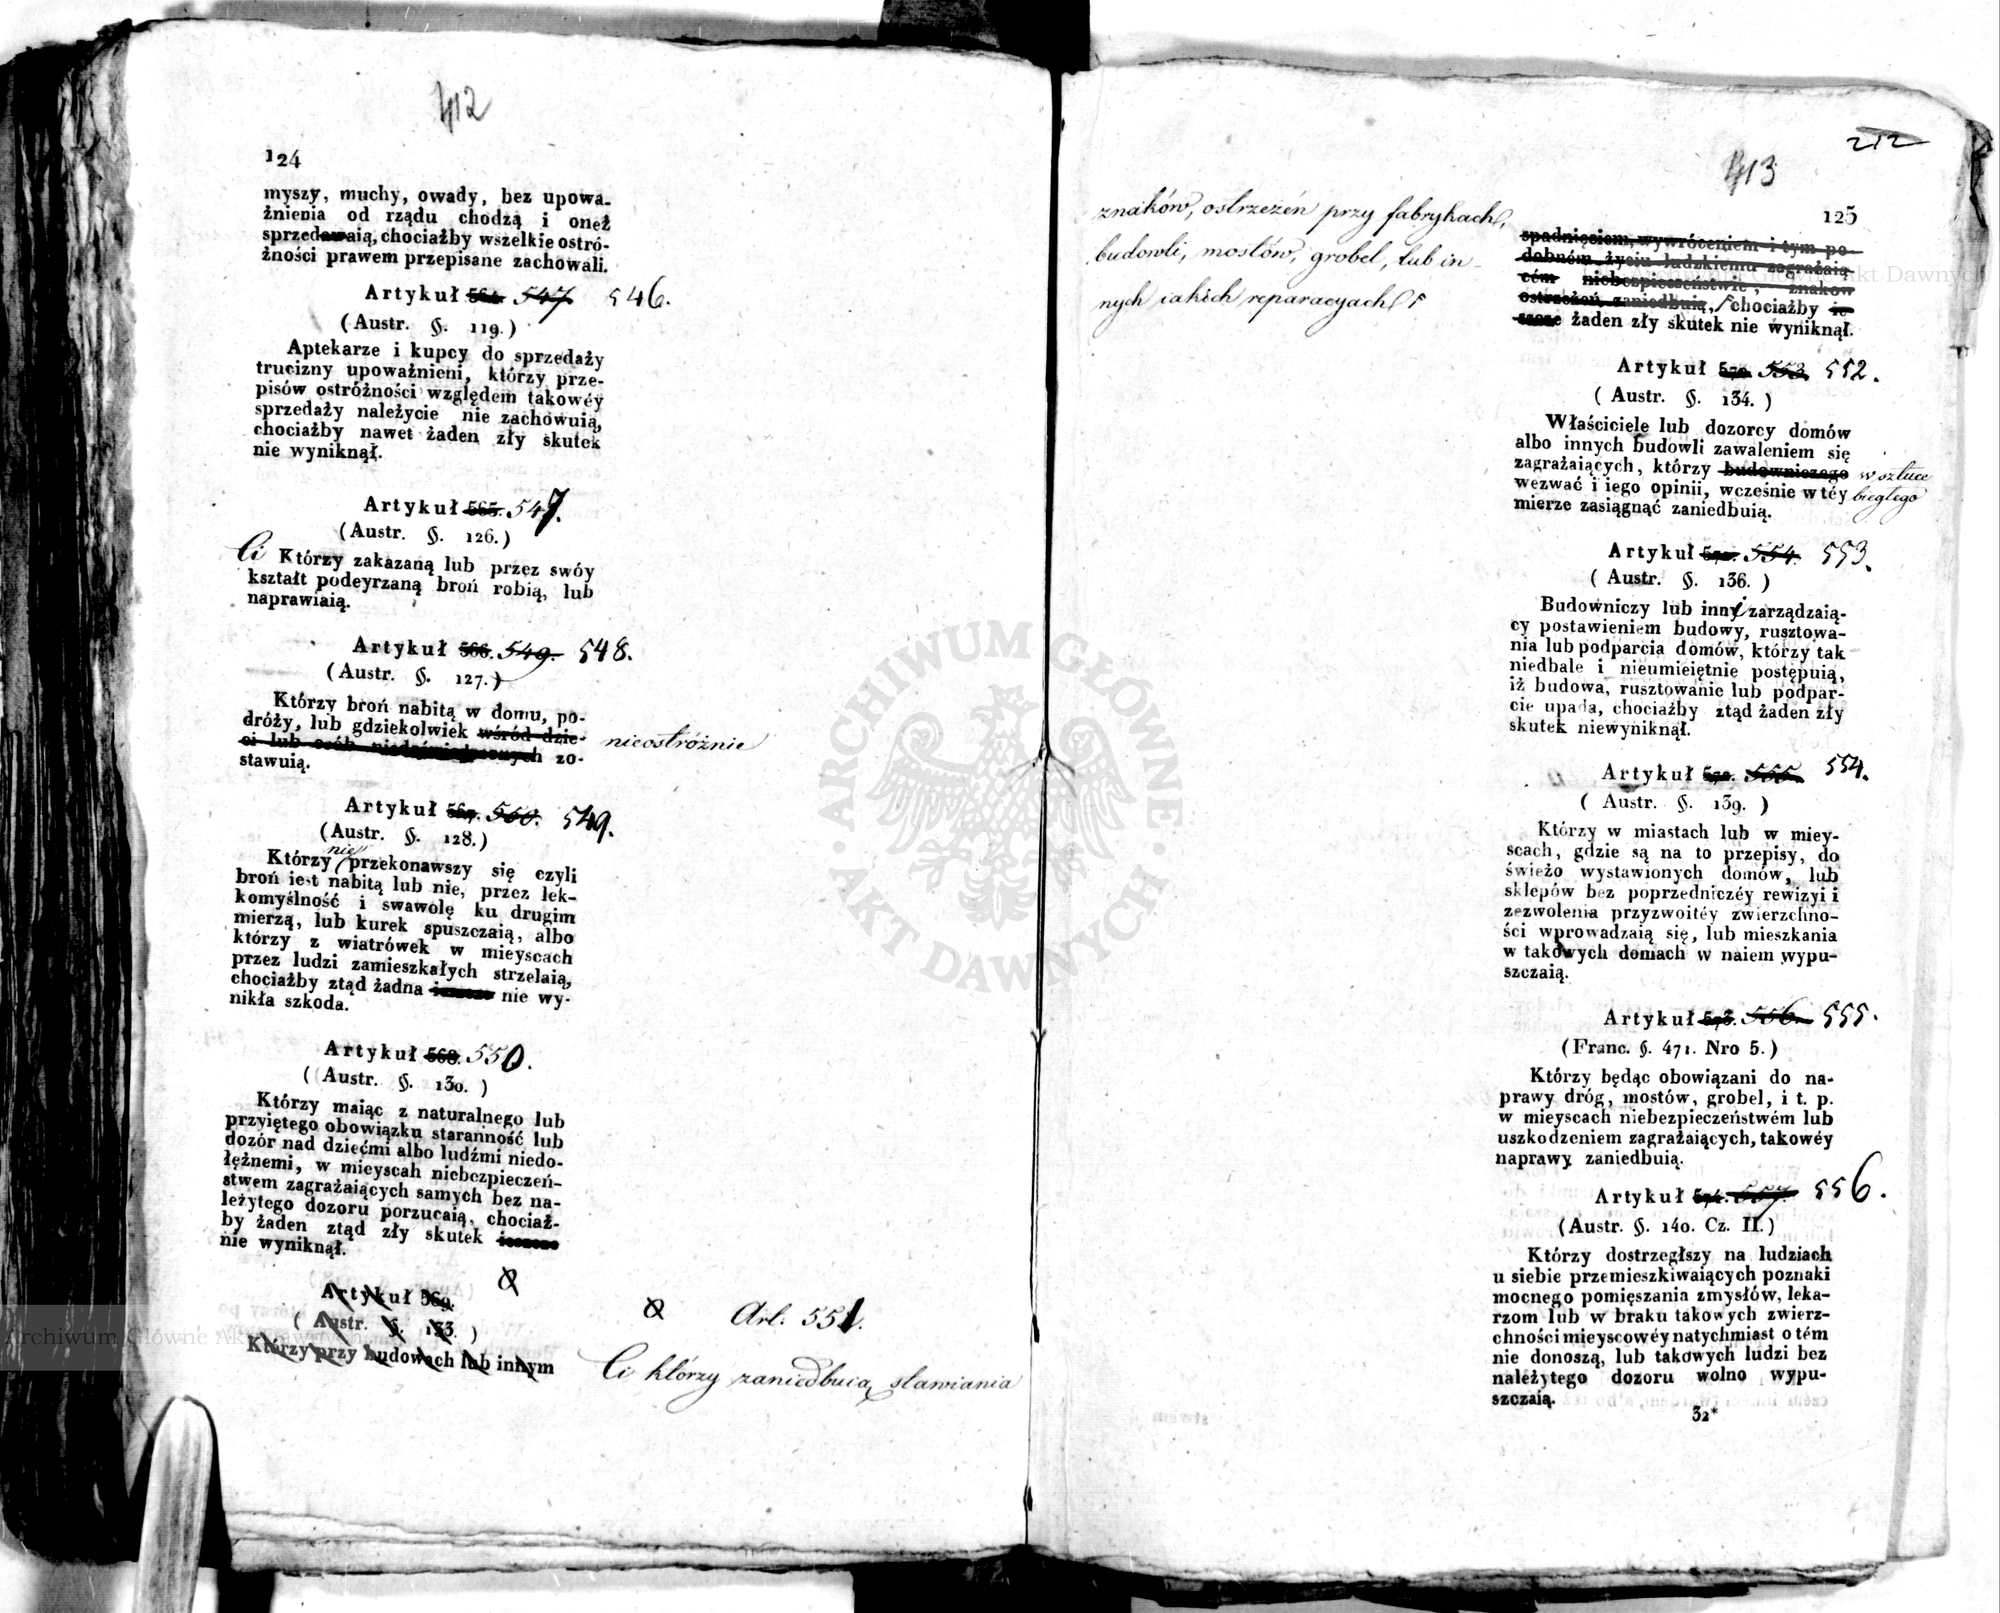 412
124
myszy, muchy, owady, bez upowa-
żnienia od rządu chodzą i oneż
sprzedawaią, chociażby wszelkie ostró-
żności prawem przepisane zachowali.
Artykuł 564. 547. 546.
(Austr. §. 119.)
Aptekarze i kupcy do sprzedaży
trucizny upoważnieni, którzy prze-
pisów ostróżności względem takowéy
sprzedaży należycie nie zachowuią,
chociażby nawet żaden zły skutek
nie wyniknął.
Artykuł 565. 547.
(Austr. §. 126.)
Ci Którzy zakazaną lub przez swóy
kształt podeyrzaną broń robią, lub
naprawiaią.
Artykuł 566. 549. 548.
(Austr. §. 127.)
Którzy broń nabitą w domu, po-
dróży, lub gdziekolwiek wśród dzie-
ci lub osób niedoświadczonych zo- nieostróżnie
stawuią.
Artykuł 567. 550. 549.
(Austr. §. 128.)
Którzy nie przekonawszy się czyli
broń iest nabitą lub nie, przez lek-
komyślność i swawolę ku drugim
mierzą, lub kurek spuszczaią, albo
którzy z wiatrówek w mieyscach
przez ludzi zamieszkałych strzelaią,
chociażby ztąd żadna ieszcze nie wy-
nikła szkoda.
Artykuł 568. 550.
(Austr. §. 130.)
Którzy maiąc z naturalnego lub
przyiętego obowiązku staranność lub
dozór nad dziećmi albo ludźmi niedo-
łężnemi, w mieyscah niebezpieczeń-
stwem zagrażaiących samych bez na-
leżytego dozoru porzucaią, chociaż-
by żaden ztąd zły skutek ieszcze
nie wyniknął.
Artykuł 569.
(Austr. §. 133.)
Którzy przy budowach lub innym
Art. 551.
Ci którzy zaniedbuią stawiania
413
212
125
znaków, ostrzeżeń przy fabrykach,
budowli, mostów, grobel, lub in-
nych iakich reparacyach
spadnięciem, wywróceniem i tym po-
dobném, życiu ludzkiemu zagrażaią
cém niebezpieczeństwie, znaków
ostrzeżeń, zaniedbuią, chociażby ie-
szcze żaden zły skutek nie wyniknął.
Artykuł 570. 553. 552.
(Austr. §. 134.)
Właściciele lub dozorcy domów
albo innych budowli zawaleniem się
zagrażaiących, którzy budowniczego w sztuce
wezwać i iego opinii, wcześnie w téy biegłego
mierze zasiągnąć zaniedbuią.
Artykuł 571. 554. 553.
(Austr. §. 136.)
Budowniczy lub inni zarządzaią-
cy postawieniem budowy, rusztowa-
nia lub podparcia domów, którzy tak
niedbale i nieumieiętnie postępuią,
iż budowa, rusztowanie lub podpar-
cie upada, chociażby ztąd żaden zły
skutek niewyniknął.
Artykuł 572. 555. 554.
(Austr. §. 139.)
Którzy w miastach lub w miey-
scach, gdzie są na to przepisy, do
świeżo wystawionych domów, lub
sklepów bez poprzedniczéy rewizyi i
zezwolenia przyzwoitéy zwierzchno-
ści wprowadzaią się, lub mieszkania
w takowych domach w naiem wypu-
szczaią.
Artykuł 573. 556. 555.
(Franc. §. 471. Nro 5.)
Którzy będąc obowiązani do na-
prawy dróg, mostów, grobel, i t. p.
w mieyscach niebezpieczeństwém lub
uszkodzeniem zagrażaiących, takowéy
naprawy zaniedbuią.
Artykuł 574. 557. 556.
(Austr. §. 140. Cz. II.)
Którzy dostrzegłszy na ludziach
u siebie przemieszkiwaiących poznaki
mocnego pomięszania zmysłów, leka-
rzom lub w braku takowych zwierz-
chności mieyscowéy natychmiast o tém
nie donoszą, lub takowych ludzi bez
należytego dozoru wolno wypu-
szczaią.
32*
ARCHIWUM GŁÓWNE
AKT DAWNYCH
Archiwum Główne Akt Dawnych